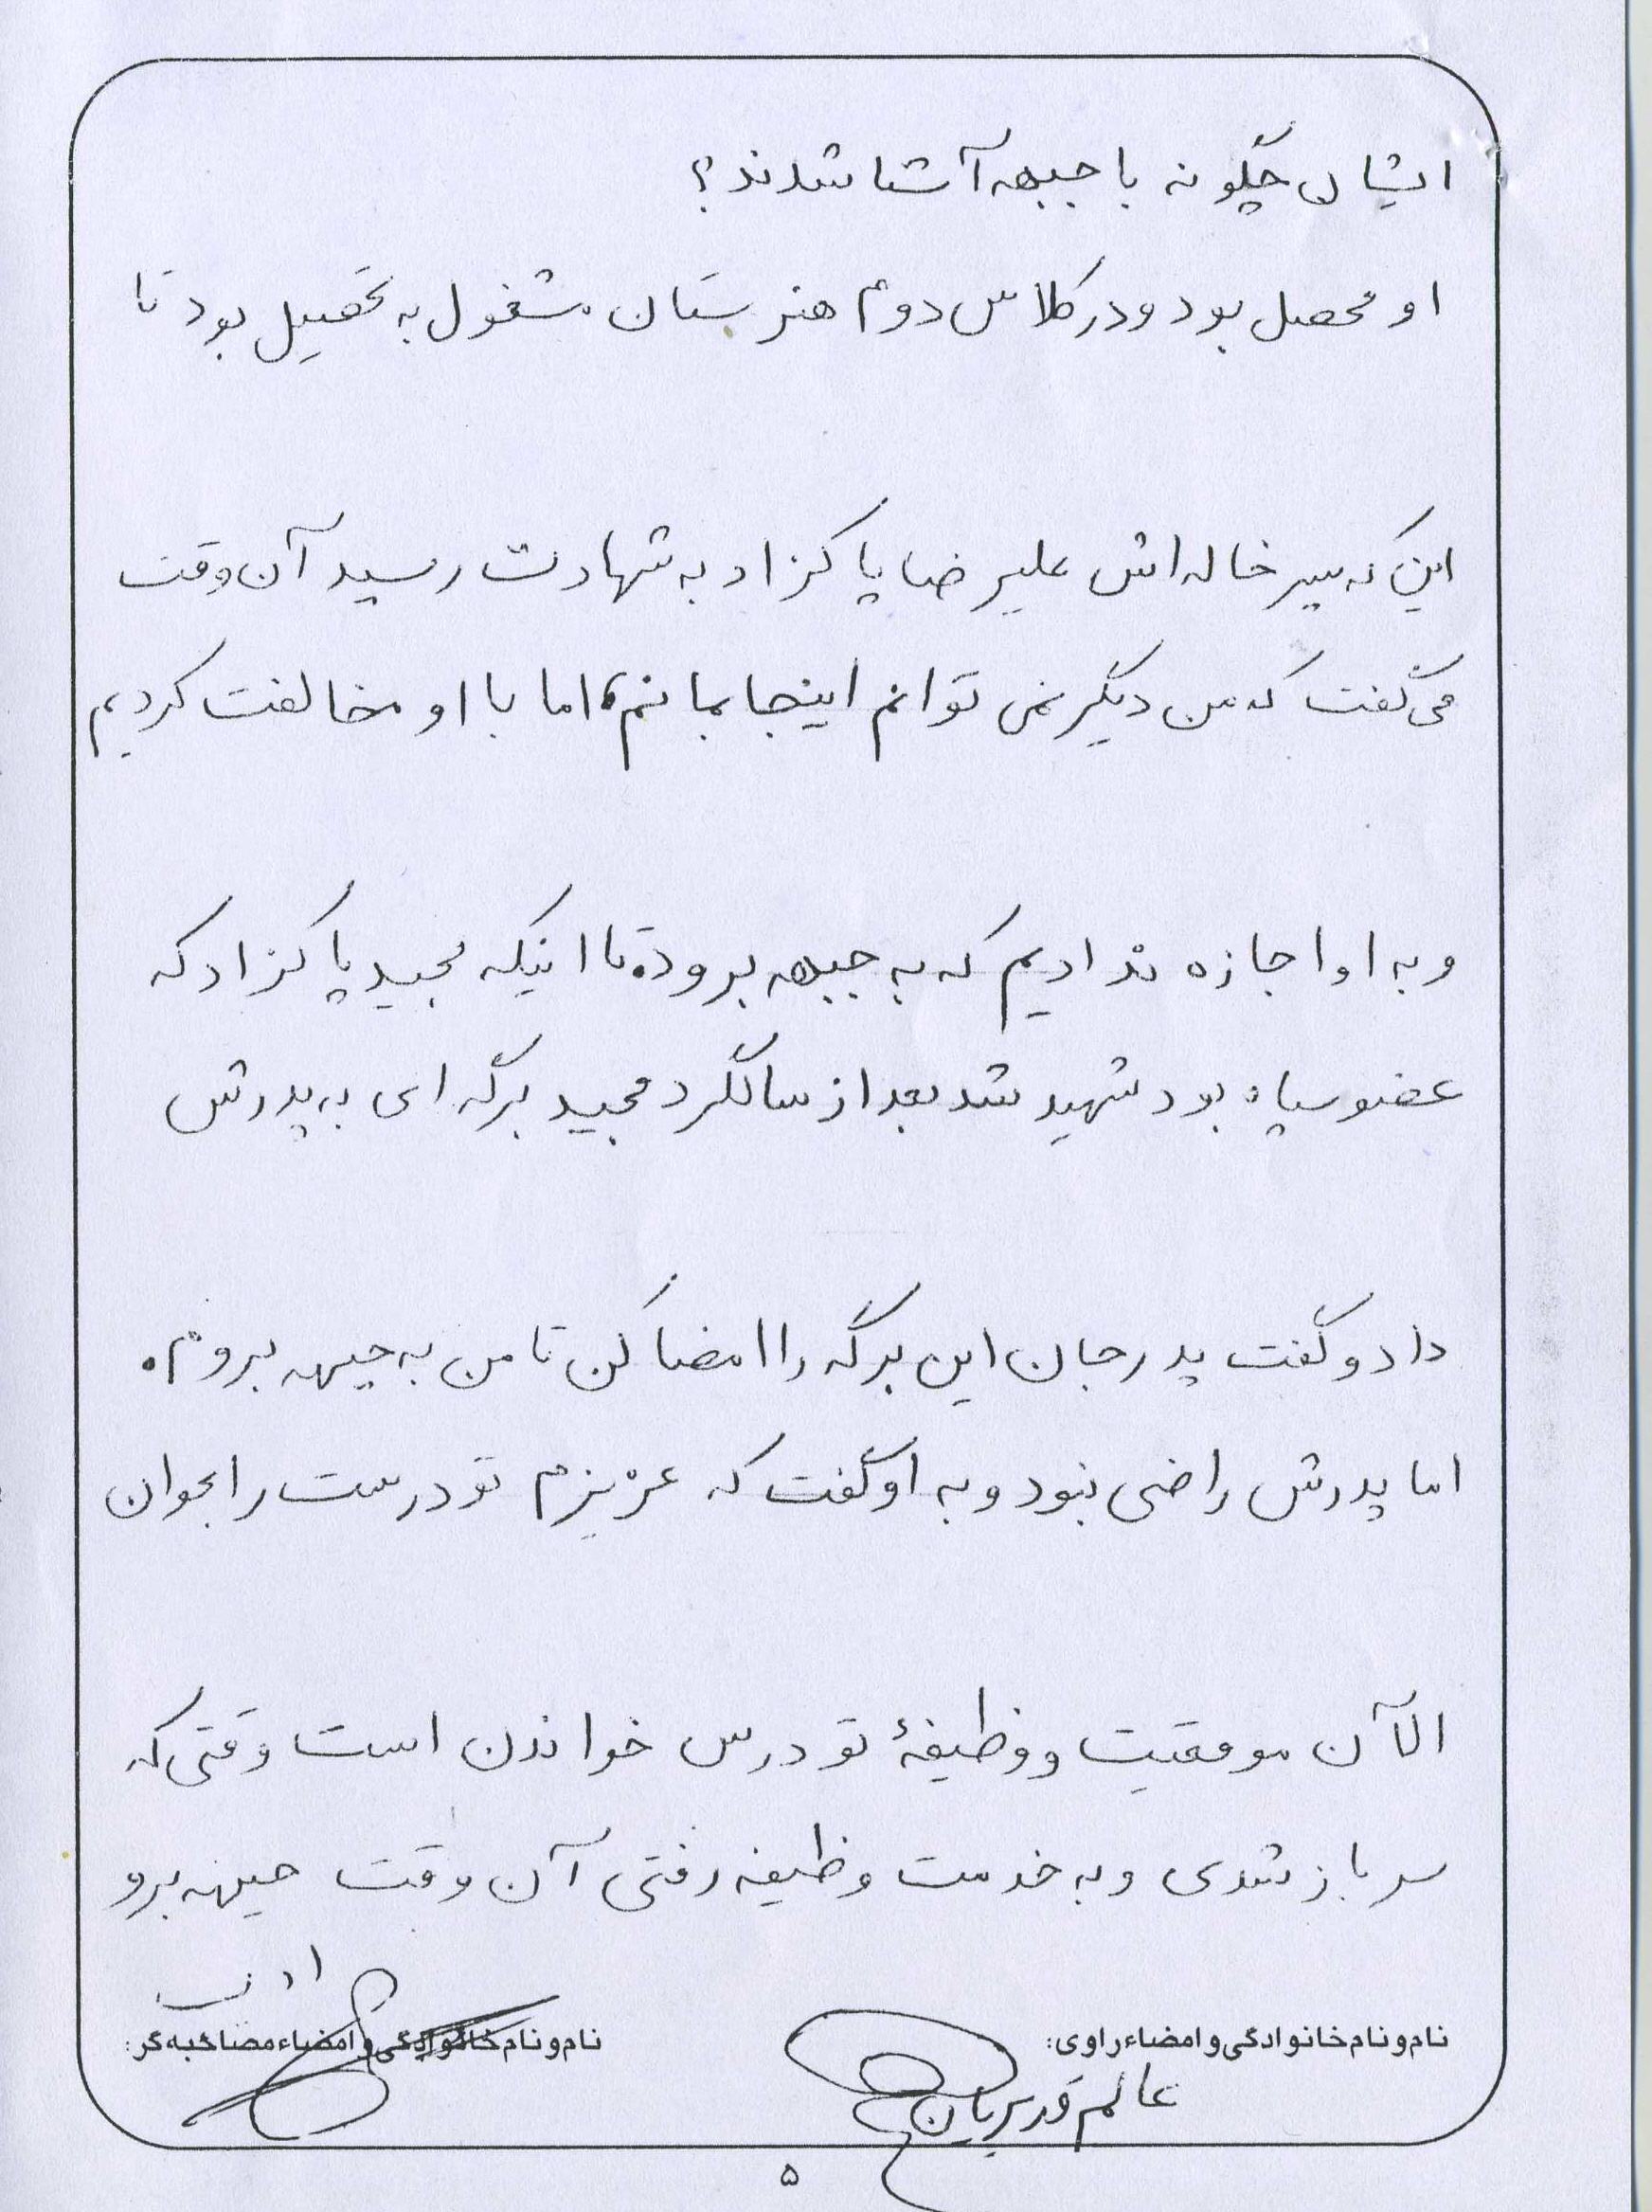 ایشان چگونه با جبهه آشنا شدند؟
او محصل بود و در کلاس دوم هنرستان مشغول به تحصیل بود تا
این که پسر خاله اش علیرضا پاکزاد به شهادت رسید آن وقت
می گفت که من دیگر نمی توانم اینجا بمانم، اما با او مخالفت کردیم
و به او اجازه ندادیم که به جبهه برود، تا اینکه مجید پاکزاد که
عضو سپاه بود شهید شد بعد از سالگرد مجید برگه ای به پدرش
داد و گفت پدر جان این برگه را امضا کن تا من به جبهه بروم.
اما پدرش راضی نبود و به او گفت که عزیزم تو درست را بخوان
الآن موقعیت و وظیفهٔ تو درس خواندن است وقتی که
سرباز شدی و به خدمت وظیفه رفتی آن وقت جبهه برو
نام و نام خانوادگی و امضاء راوی:
نام و نام خانوادگی و امضاء مصاحبه گر:
عالم قدیریان
۵